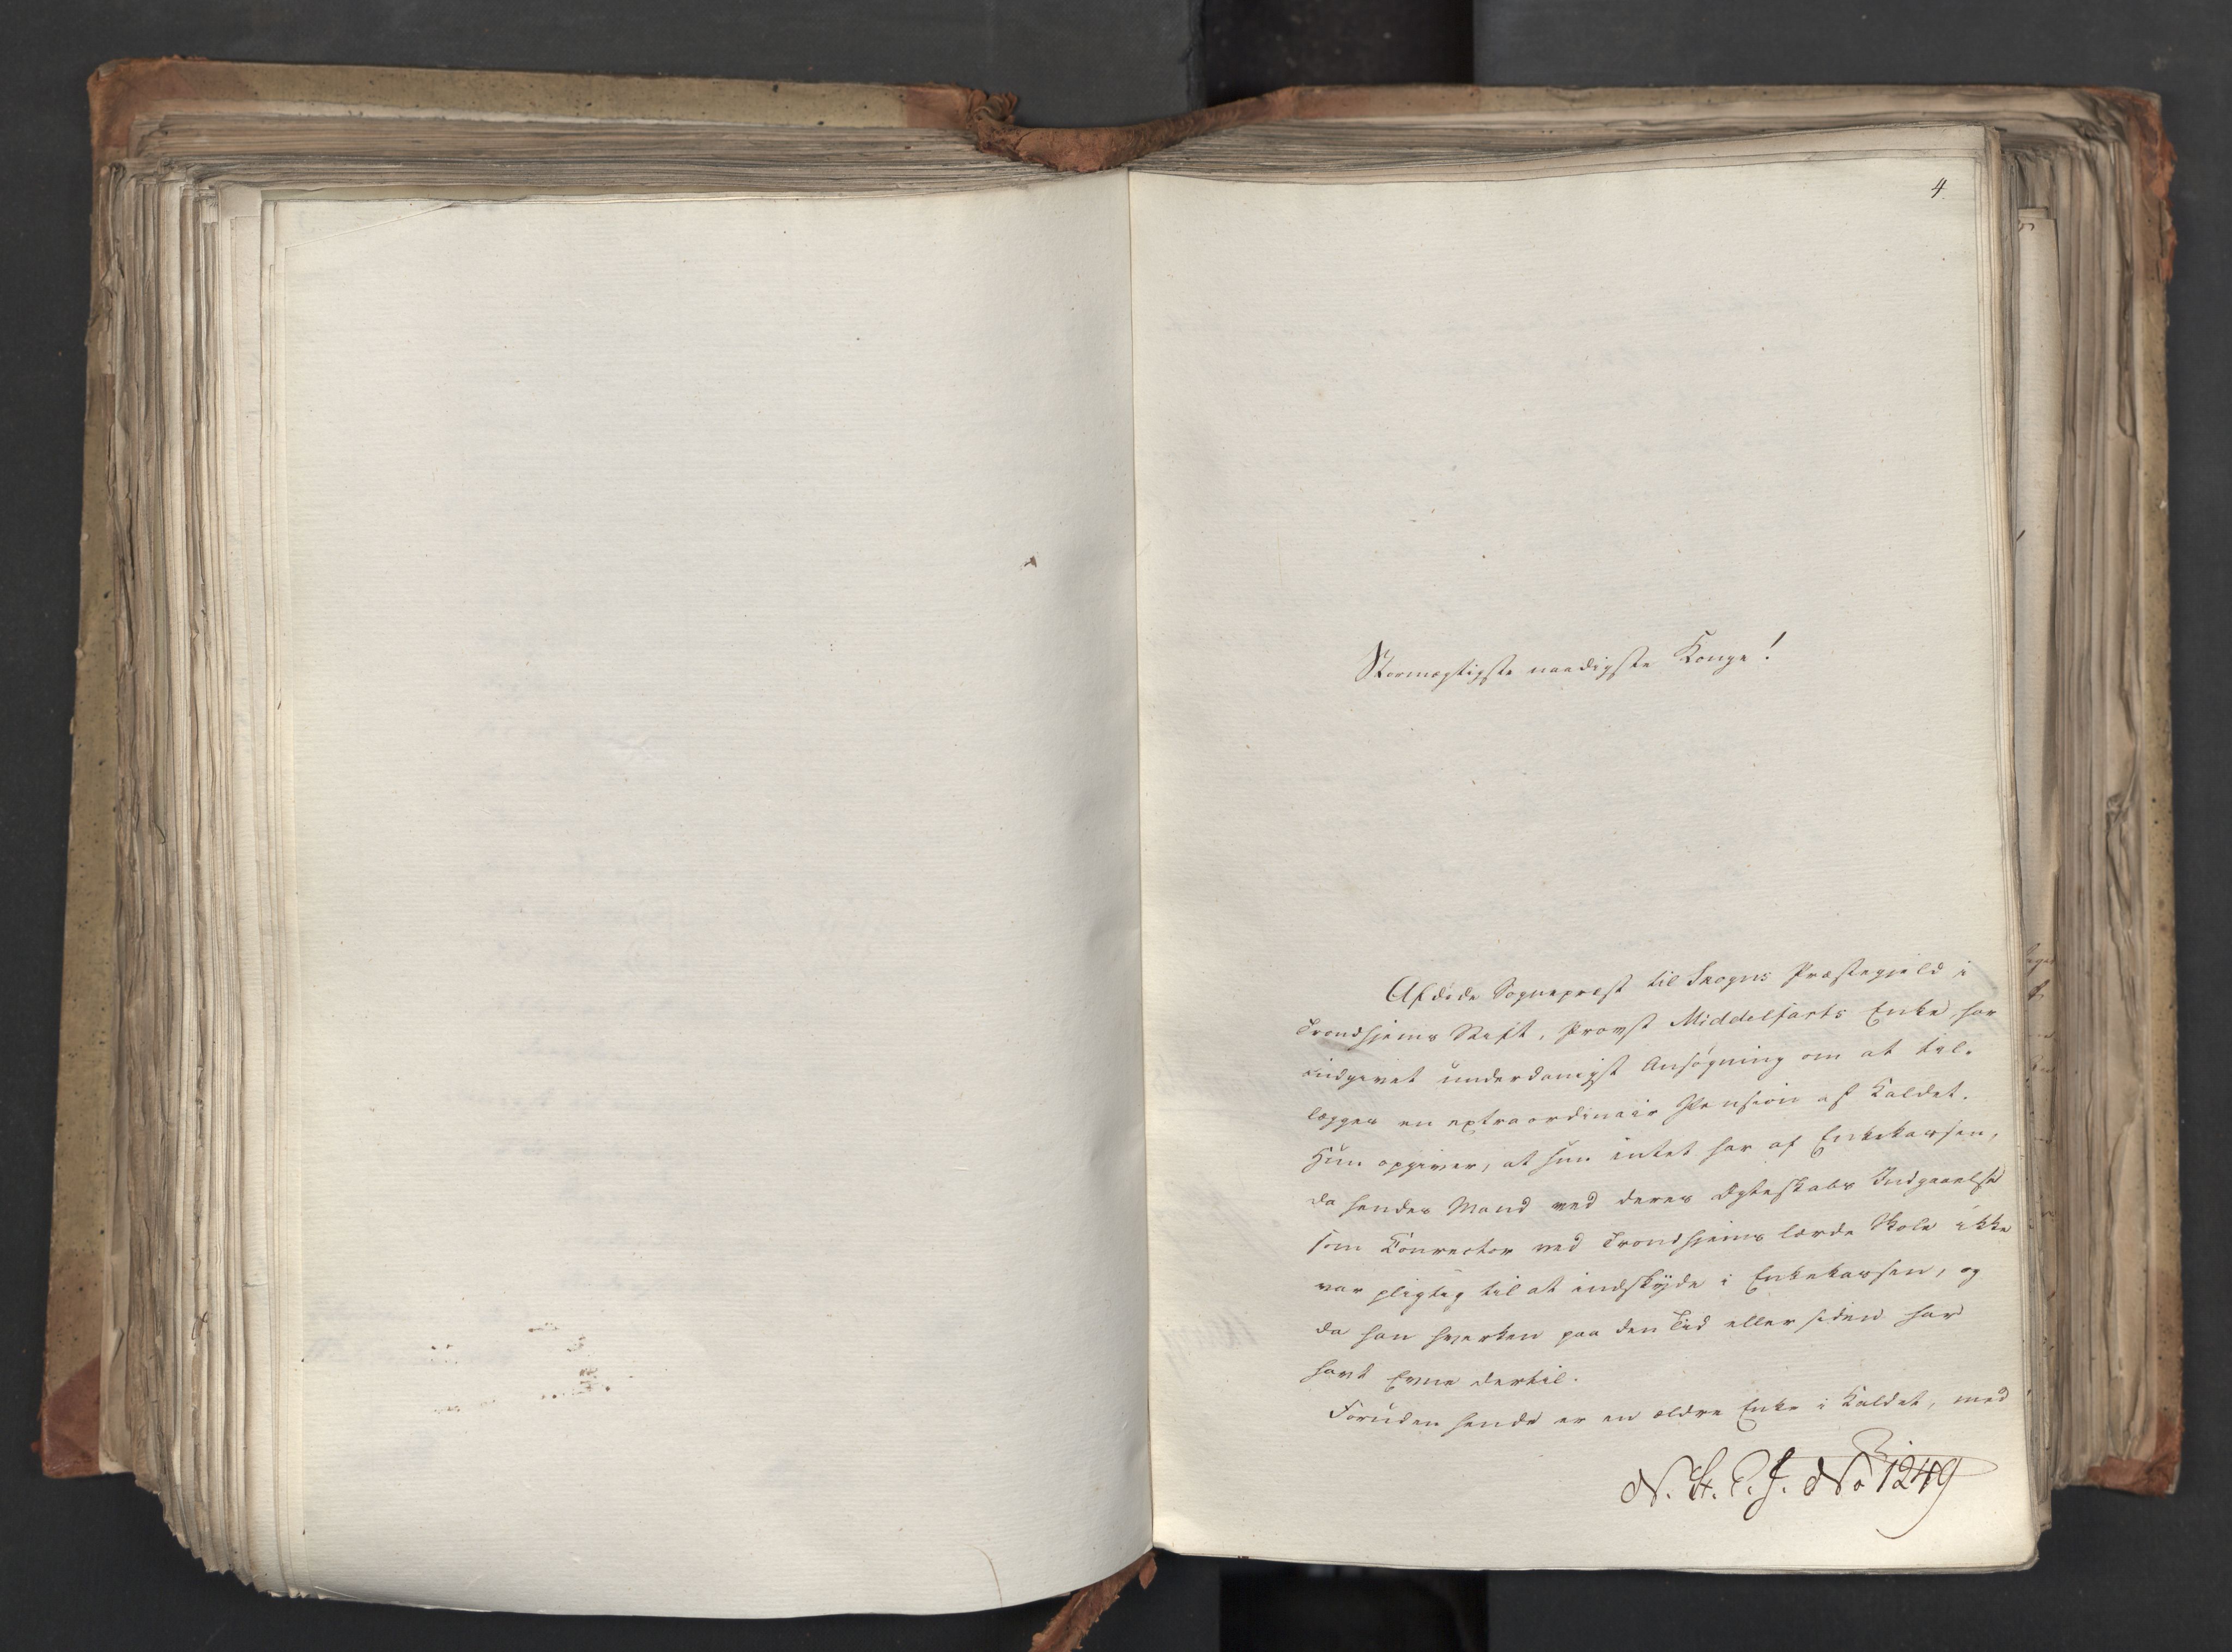 4
Stormægtigste naadigste Konge!
Afdøde Sognepræst til Skogns Præstegjeld i
Trondhjems Stift, Provst Middelfarts Enke, har
indgivet underdanigst Ansøgning om at til-
lægges en extraordinair Pension af Kaldet.
Hun opgiver, at hun intet har af Enkekassen,
da hendes Mand ved deres Ægteskabs Indgaaelse
som Conrector ved Trondhjems lærde Skole ikke
var pligtig til at indskyde i Enkekassen, og
da han hverken paa den Tid eller siden har
havt Evne dertil.
Foruden hende er en ældre Enke i Kaldet, med
No 1249